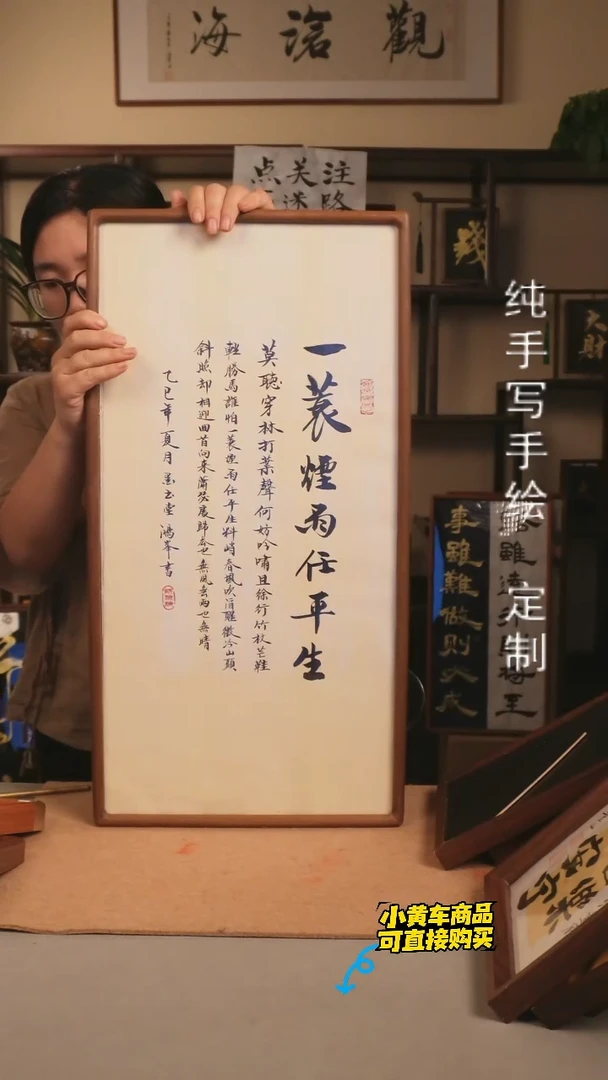 觀滄海
点关注
迷路
纯手写手绘 定制
一蓑煙雨任平生
莫聽穿林打葉聲何妨吟嘯且徐行竹杖芒鞋
輕勝馬誰怕一蓑煙雨任平生料峭春風吹酒醒微冷山頭
斜照却相迎回首向來蕭瑟處歸去也無風雨也無晴
乙巳年夏月墨玉堂鴻峯書
事雖難做則必成
小黄车商品
可直接购买